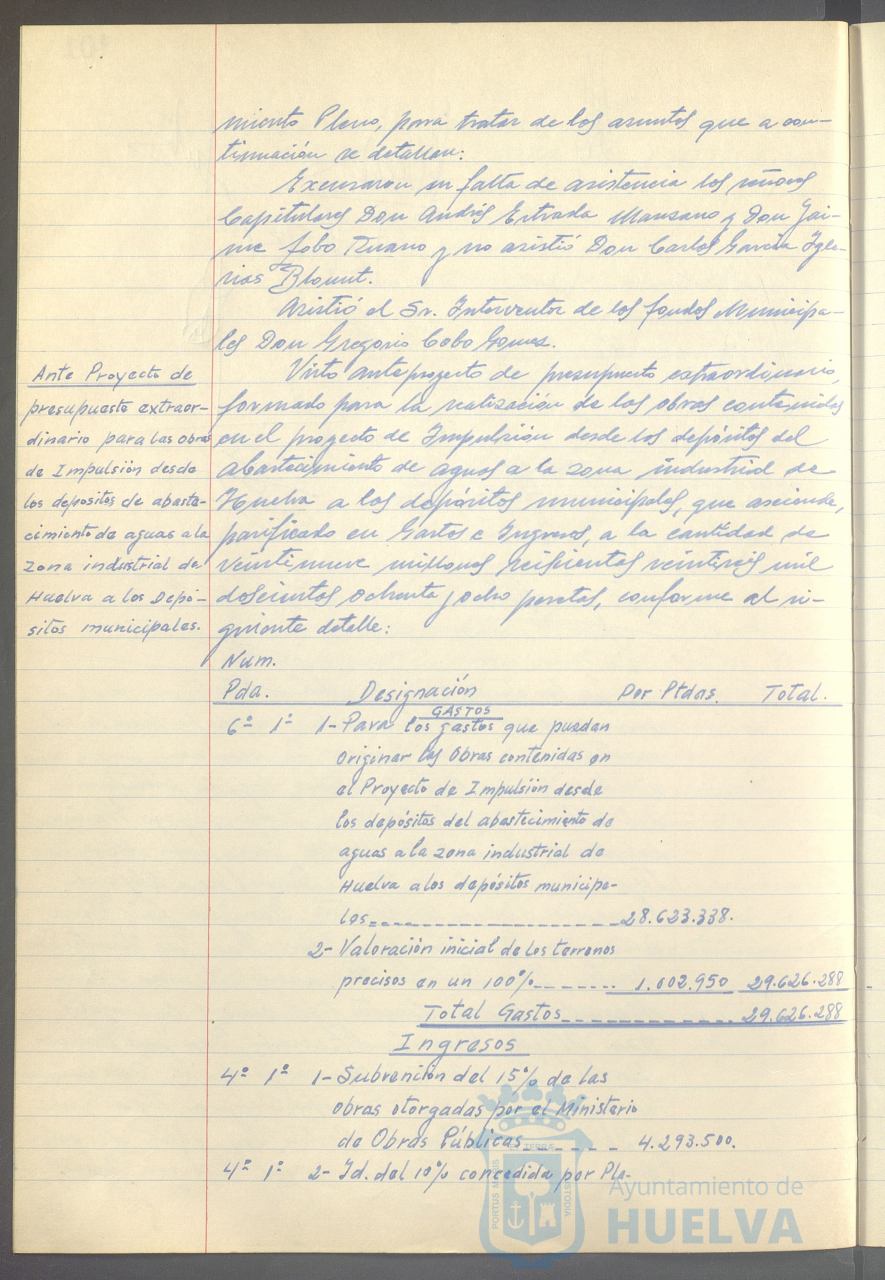 miento Pleno, para tratar de los asuntos que a con-
tinuación se detallan:
Excusaron su falta de asistencia los señores
Capitulares Don Andrés Estrada Manzano y Don Jai-
me Jobo Ruano y no asistió Don Carlos García Igle-
sias Blount.
Asistió el Sr. Interventor de los fondos Municipa-
les Don Gregorio Cobo Gomez.
Ante Proyecto de
presupuesto extraor-
dinario para las obras
de Impulsión desde
los depositos de abaste-
cimiento de aguas a la
zona industrial de
Huelva a los Depó-
sitos municipales.
Visto anteproyecto de presupuesto extraordinario,
formado para la realización de las obras contenidas
en el proyecto de Impulsión desde los depósitos del
abastecimiento de aguas a la zona industrial de
Huelva a los depósitos municipales, que asciende,
parificado en Gastos e Ingresos, a la cantidad de
veintinueve millones seiscientas veintiseis mil
doscientas ochenta y ocho pesetas, conforme al si-
guiente detalle:
Num.
Pda. Designación Por Ptdas. Total.
GASTOS
6º 1º 1- Para los gastos que puedan
originar las Obras contenidas en
el Proyecto de Impulsión desde
los depósitos del abastecimiento de
aguas a la zona industrial de
Huelva a los depósitos municipa-
les 28.623.338.
2- Valoración inicial de los terrenos
precisos en un 100% 1.002.950 29.626.288
Total Gastos 29.626.288
Ingresos
4º 1º 1- Subvención del 15% de las
obras otorgadas por el Ministerio
de Obras Públicas 4.293.500.
4º 1º 2- Id. del 10% concedida por Pla-
PORTUS MARIS TERRAE CUSTODIA
Ayuntamiento de
HUELVA